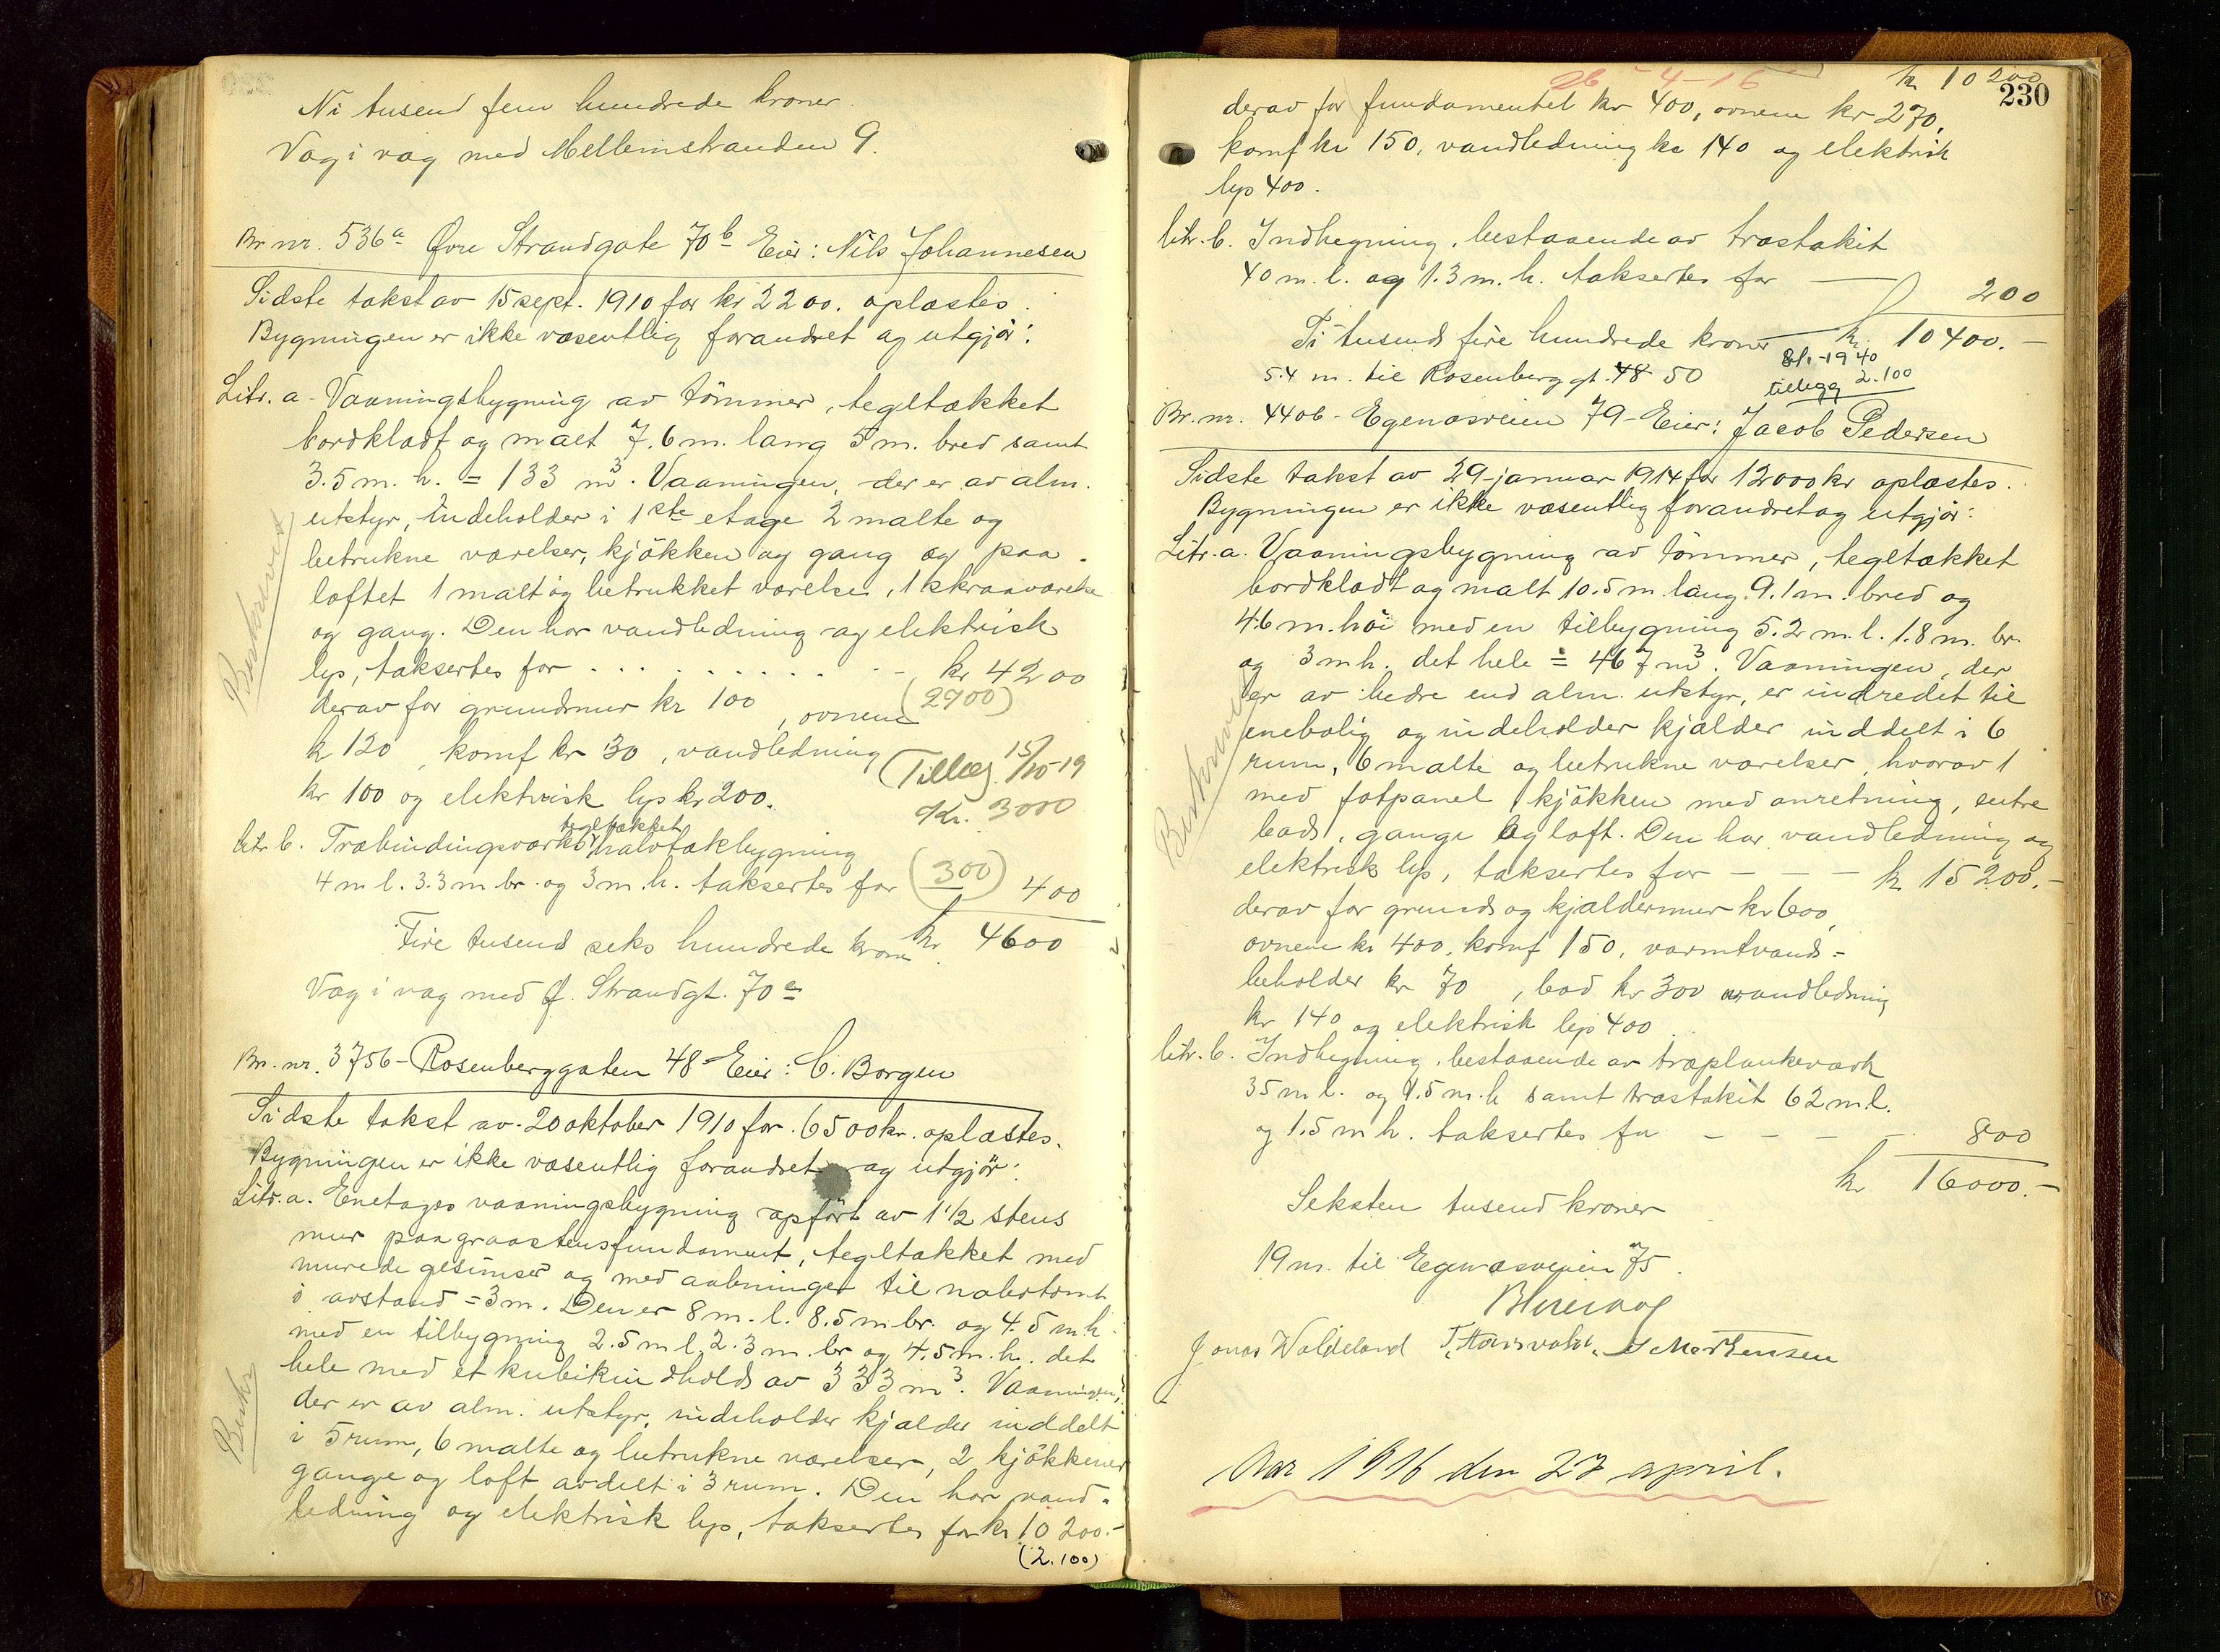 Ni tusend fem hundrede kroner.
Væg i væg med Mellemstranden 9.
Br nr. 536a Øvre Strandgate 70b Eier: Nils Johannesen
Sidste takst av 15 sept. 1910 for kr 2200. oplæstes.
Bygningen er ikke væsentlig forandret og utgjör:
Litr. a - Vaaningsbygning av tömmer, tegltækket
bordklædt og malt 7.6 m. lang 5 m. bred samt
3.5 m. h. = 133 m3. Vaaningen, der er av alm.
utstyr, indeholder i 1ste etage 2 malte og
betrukne værelser, kjökken og gang og paa
loftet 1 malt og betrukket værelse, 1 skraaværelse
og gang. Den har vandledning og elektrisk
lys, taksertes for . . . . . . . . . - kr 4200
(2700)
derav for grundmur kr 100, ovnene
kr 120, komf kr 30, vandledning
kr 100 og elektrisk lys kr 200.
(Tillæg 15/10-19
Kr. 3000
Beskrevet
litr b. Træbindingsværks tegltækket halvtakbygning
4 m l. 3.3 m br. og 3 m. h. taksertes for (300) 400
Fire tusend seks hundrede kroner kr. 4600
Væg i væg med Ø. Strandgt. 70a
Br. nr. 3756 - Rosenberggaten 48 - Eier: C. Borgen
Sidste takst av 20 oktober 1910 for 6500 kr. oplæstes.
Bygningen er ikke væsentlig forandret og utgjör:
Litr. a. Enetages vaaningsbygning opfört av 1 1/2 stens
mur paa graastensfundament, tegltækket med
murede gesimser og med aabninger til nabotomt
i avstand = 3 m. Den er 8 m. l. 8.5 m br. og 4.5 m. h.
med en tilbygning 2.5 m l. 2.3 m. br og 4.5 m. h. det
hele med et kubikindhold av 333 m3. Vaaningen,
der er av alm. utstyr, indeholder kjælder inddelt
i 5 rum, 6 malte og betrukne værelser, 2 kjökkener
gange og loft avdelt i 3 rum. Den har vand-
ledning og elektrisk lys, taksertes for kr 10 200.-
(2.100)
Beskr
26-4-16
kr 10 200
230
derav for fundamentet kr 400, ovnene kr 270,
komf kr 150, vandledning kr 140 og elektrisk
lys 400.
litr. b. Indhegning, bestaaende av træstakit
40 m. l. og 1.3 m. h. taksertes for 200
Ti tusend fire hundrede kroner kr. 10400.-
5.4 m. til Rosenberggt. 48 50
8/1-1940
tillegg 2.100
Br. nr. 440b - Egenæsveien 79 - Eier: Jacob Pedersen
Sidste takst av 29 januar 1914 for 12000 kr oplæstes.
Bygningen er ikke væsentlig forandret og utgjör:
Litr. a. Vaaningsbygning av tömmer, tegltækket
bordklædt og malt 10.5 m. lang. 9.1 m. bred og
4.6 m. höi med en tilbygning 5.2 m. l. 1.8 m. br.
og 3 m h. det hele = 467 m3. Vaaningen, der
er av bedre end alm. utstyr, er indredet til
enebolig og indeholder kjælder inddelt i 6
rum, 6 malte og betrukne værelser, hvorav 1
med fotpanel, kjökken med anretning, entre
bad, gange og loft. Den har vandledning og
elektrisk lys, taksertes for - - - kr 15200.-
Beskrevet
derav for grund og kjældermur kr 600,
ovnene kr 400, komf 150, varmtvands-
beholder kr 70, bad kr 300 vandledning
kr 140 og elektrisk lys 400.
litr. b. Indhegning, bestaaende av træplankeværk
35 m l. og 1.5 m. h samt træstakit 62 m. l.
og 1.5 m h. taksertes for - - - - 800
kr 16000.-
Seksten tusend kroner
19 m. til Egenæsveien 75.
Jonas Waldeland T. Thorsvold. S Mortensen
Aar 1916 den 27 april.